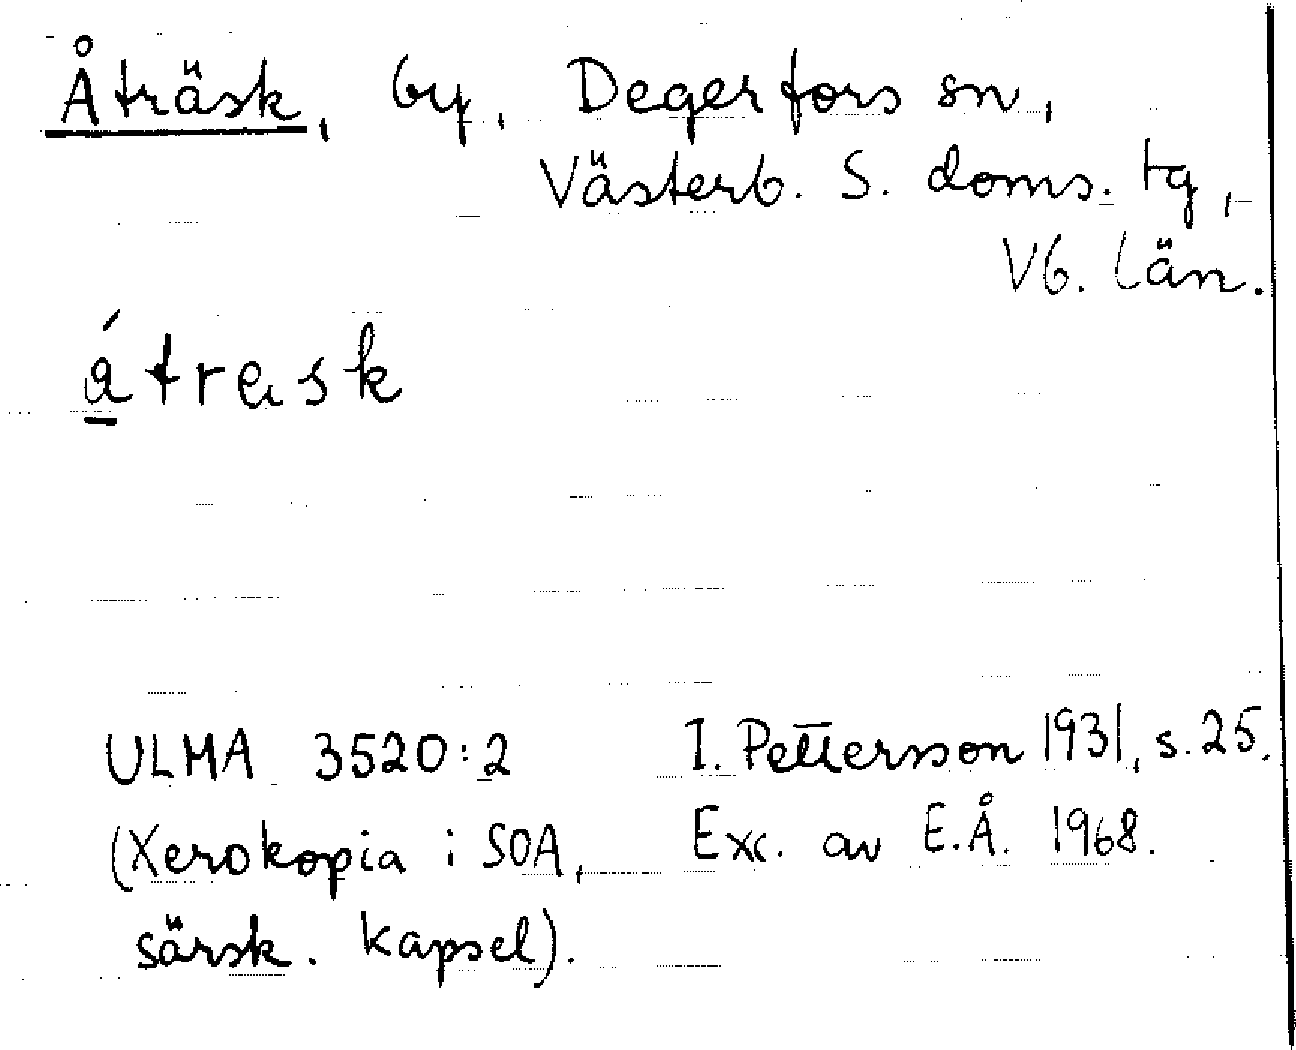 Åträsk, by, Degerfors sn,
Västerb. S. doms. tg,
Vb. län.
á̱trask
ULMA 3520:2 I. Pettersson 1931, s. 25.
(Xerokopia i SOA, Exc. av E.Å. 1968.
särsk. kapsel).